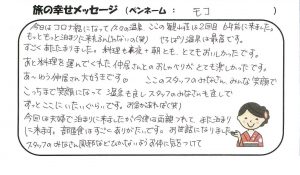 旅の幸せメッセージ（ペンネーム： モコ ）
今日はコロナ禍になって1次々の温泉 ここの観山荘は2回目 6年前に来ました。
もっともっと泊まりに来ませんか(笑) やっぱり温泉は最高です。
すごくあたたまりました。料理も最高！朝と冬、とてもおいしかったです。
あと料理を運んでくれた仲居さんとのおしゃべりがとても楽しかったです。
あ〜ゆう仲居さん大好きです。 ここのスタッフのみなさん、みんな笑顔で
こっちまで笑顔になって 温泉も良しスタッフのみなさんも良しで
ずっとここにいたいぐらいです。お金があれば(笑)
今回は夫婦で泊まりに来ましたが今度は両親つれて、また泊まり
に来ます。部屋食はすごくありがたいです。お世話になりました。
スタッフのみなさん風邪などひかないようお体に気をつけて